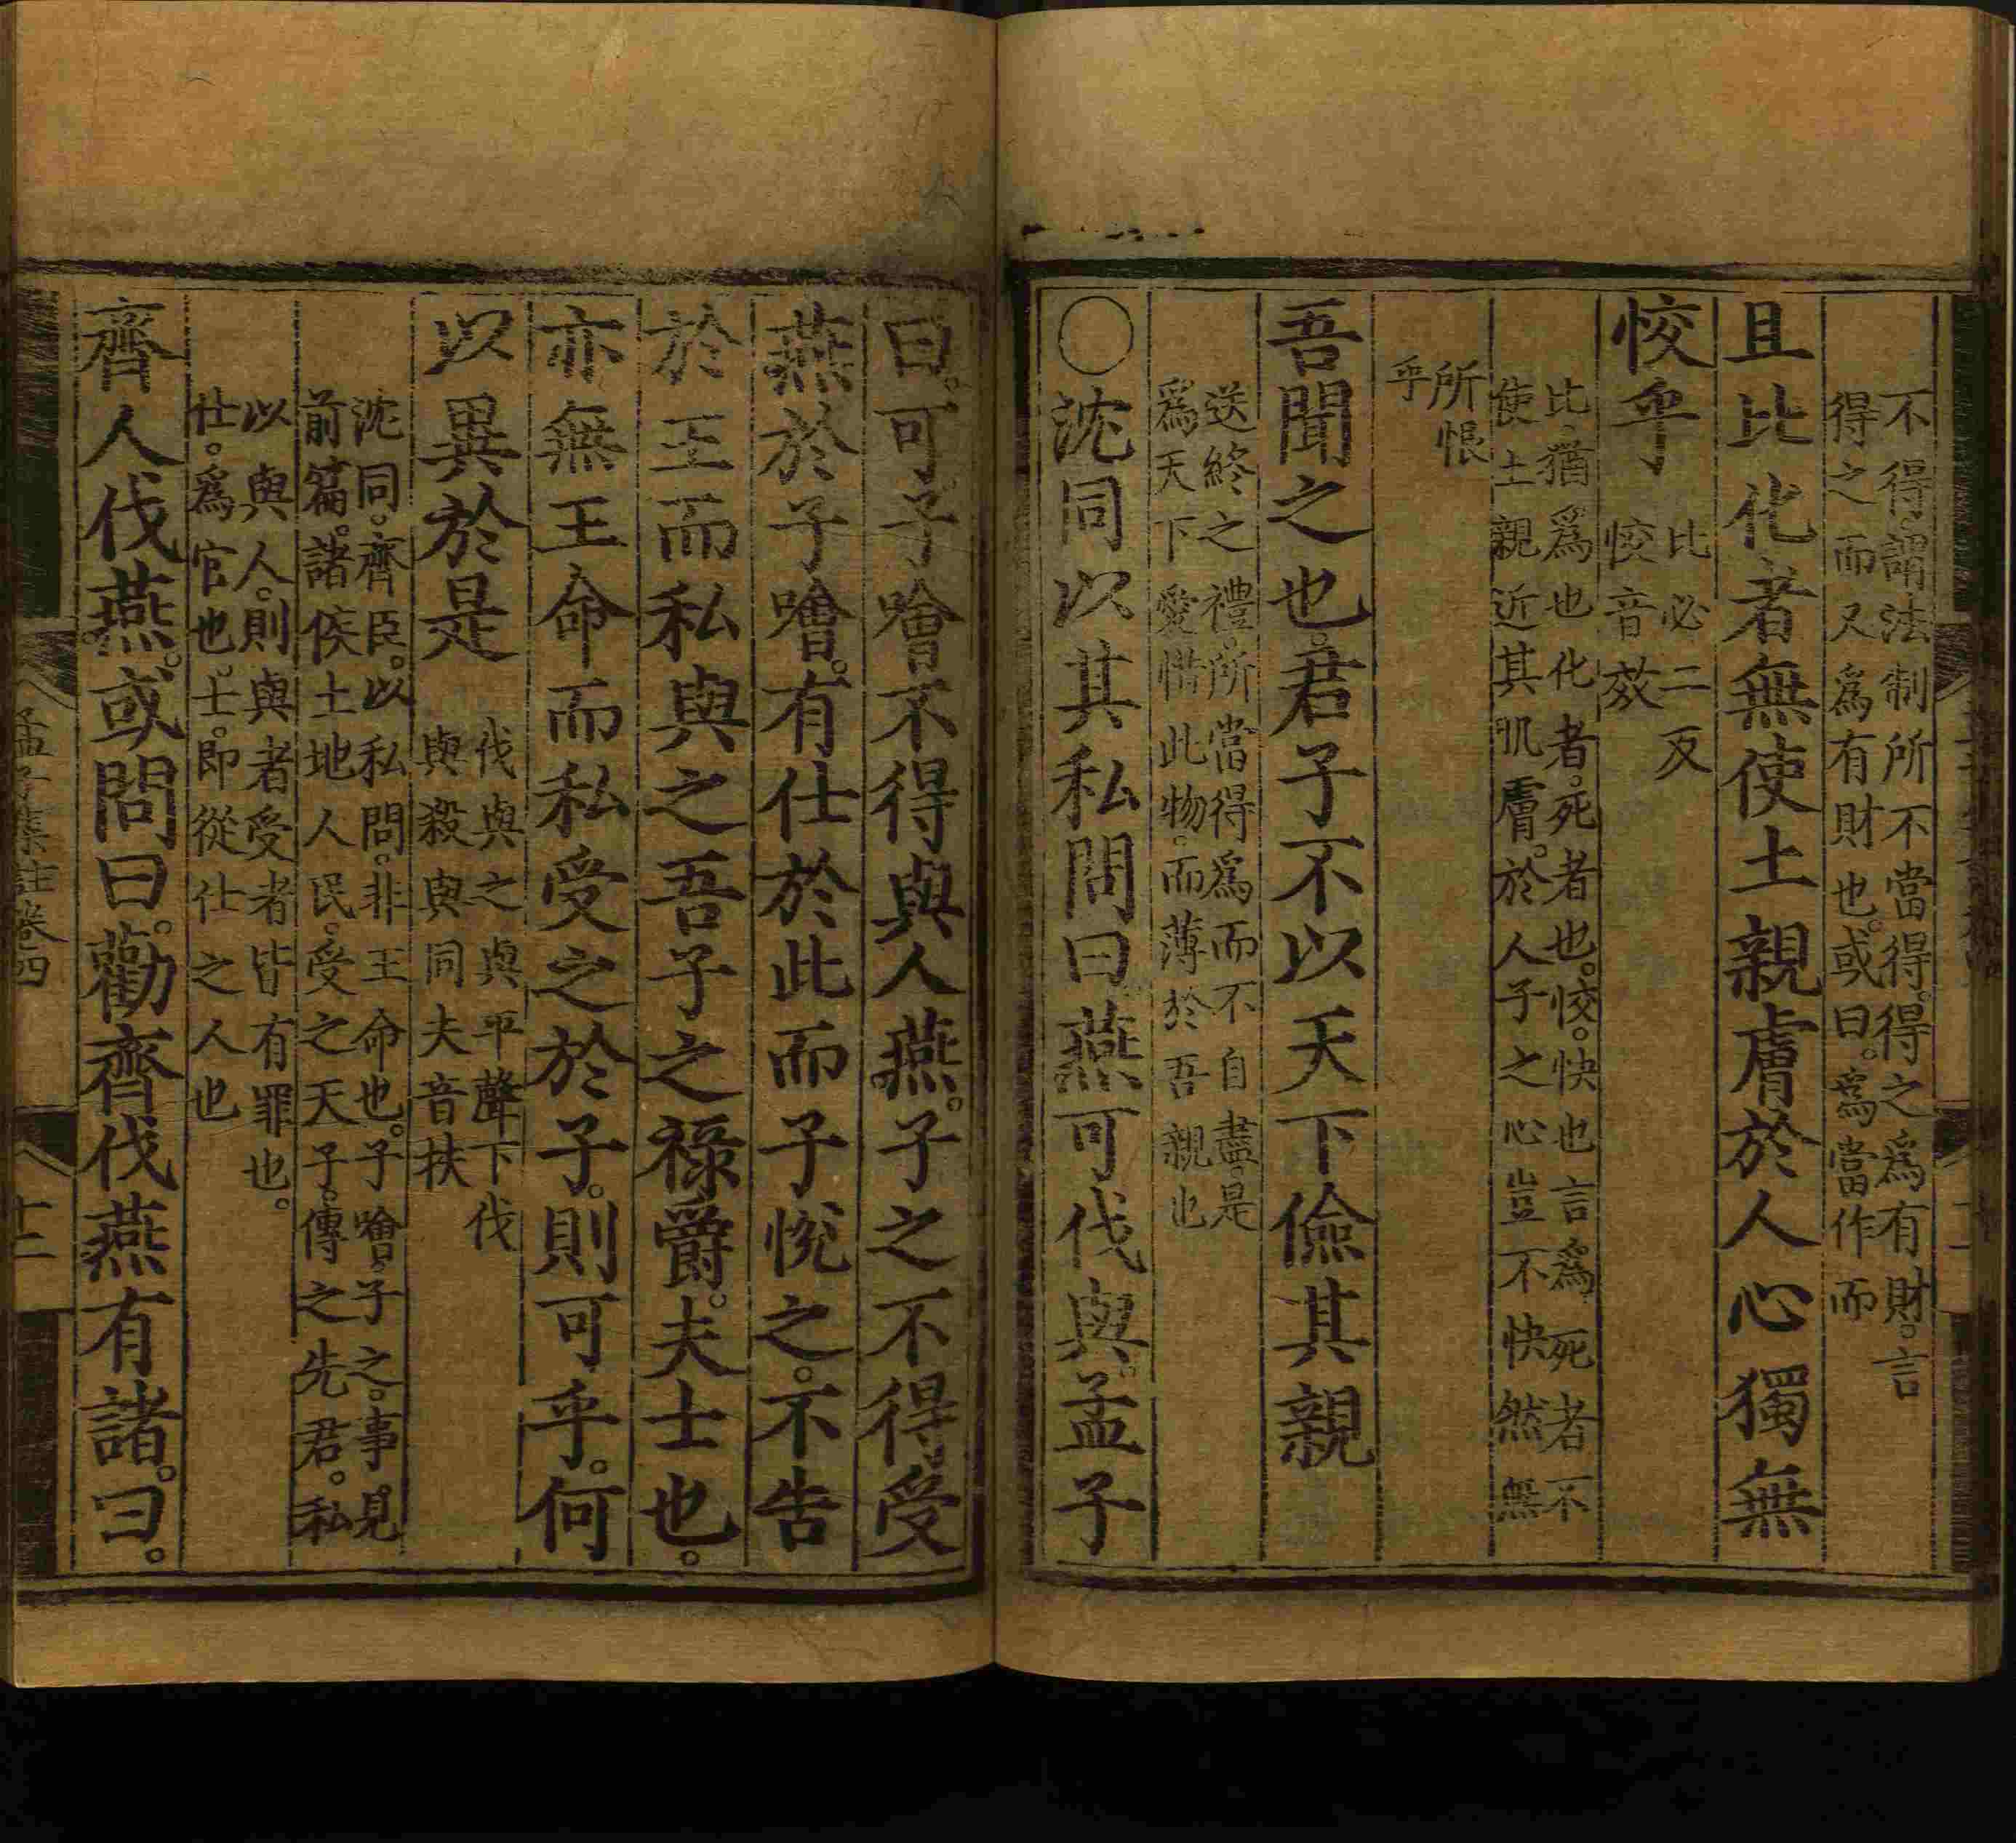 不得謂法制所不當得。得之爲有財。言
得之而又爲有財也。或曰。爲當作而
且比化者無使土親膚於人心獨無
恔乎
比必二反
恔音效
比。猶爲也化者。死者也。恔。快也言爲死者不
使土親近其肌膚。於人子之心豈不快然無
所恨
乎
吾聞之也。君子不以天下儉其親
送終之禮。所當得爲而不自盡。是
爲天下愛惜此物。而薄於吾親也
○沈同以其私問曰燕可伐與。孟子
曰。可。子噲不得與人燕。子之不得受
燕於子噲。有仕於此而子悅之。不告
於王而私與之吾子之祿爵。夫士也。
亦無王命而私受之於子。則可乎。何
以異於是
伐與之與平聲下伐
與殺與同夫音扶
沈同。齊臣。以私問。非王命也。子噲。子之。事。見
前篇。諸侯土地人民。受之天子。傳之先君。私
以與人。則與者受者皆有罪也。
仕。爲官也。士。即從仕之人也
齊人伐燕。或問曰。勸齊伐燕有諸。曰。
孟子集註卷四
十二